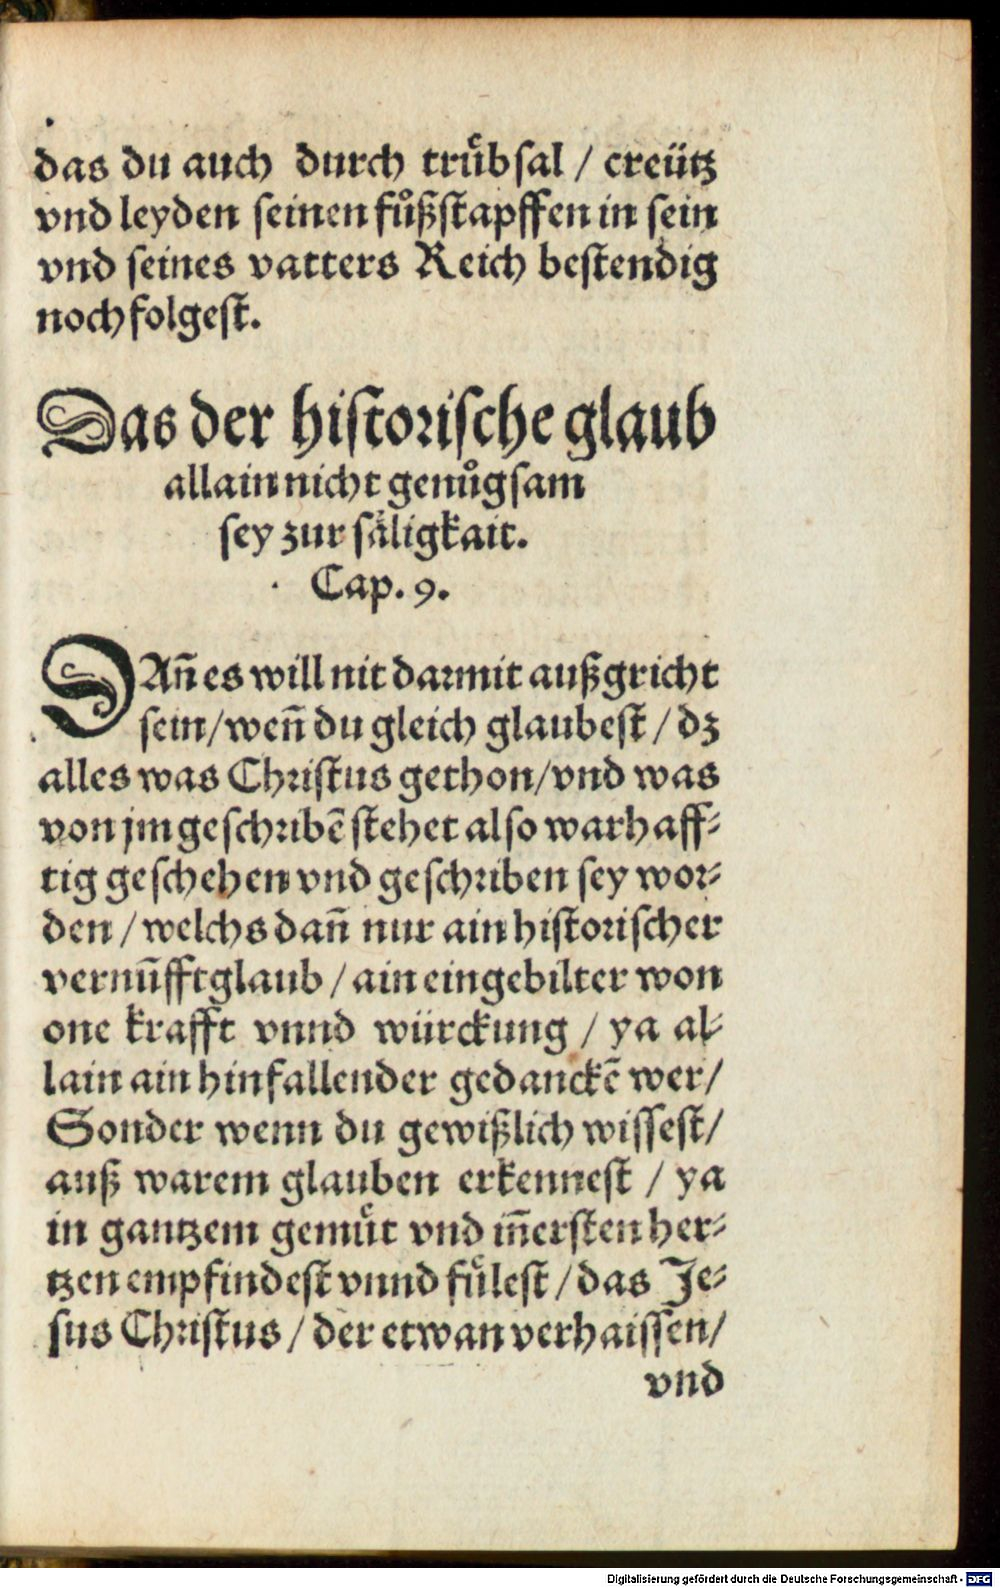 das du auch durch truͤbsal / creütz
vnd leyden seinen fuͦßstapffen in sein
vnd seines vatters Reich bestendig
nochfolgest.
Das der historische glaub
allain nicht genuͦgsam
sey zur saͤligkait.
Cap. 9.
DAñ es will nit darmit außgricht
sein/weñ du gleich glaubest / dz
alles was Christus gethon/vnd was
von jm geschribẽ stehet also warhaff⸗
tig geschehen vnd geschriben sey wor⸗
den / welchs dañ nur ain historischer
vernũfftglaub / ain eingebilter won
one krafft vnnd würckung / ya al⸗
lain ain hinfallender gedanckẽ wer/
Sonder wenn du gewißlich wissest/
auß warem glauben erkennest / ya
in gantzem gemuͤt vnd iñersten her⸗
tzen empfindest vnnd fuͤlest / das Je⸗
sus Christus / der etwan verhaissen/
vnd
Digitalisierung gefördert durch die Deutsche Forschungsgemeinschaft - DFG